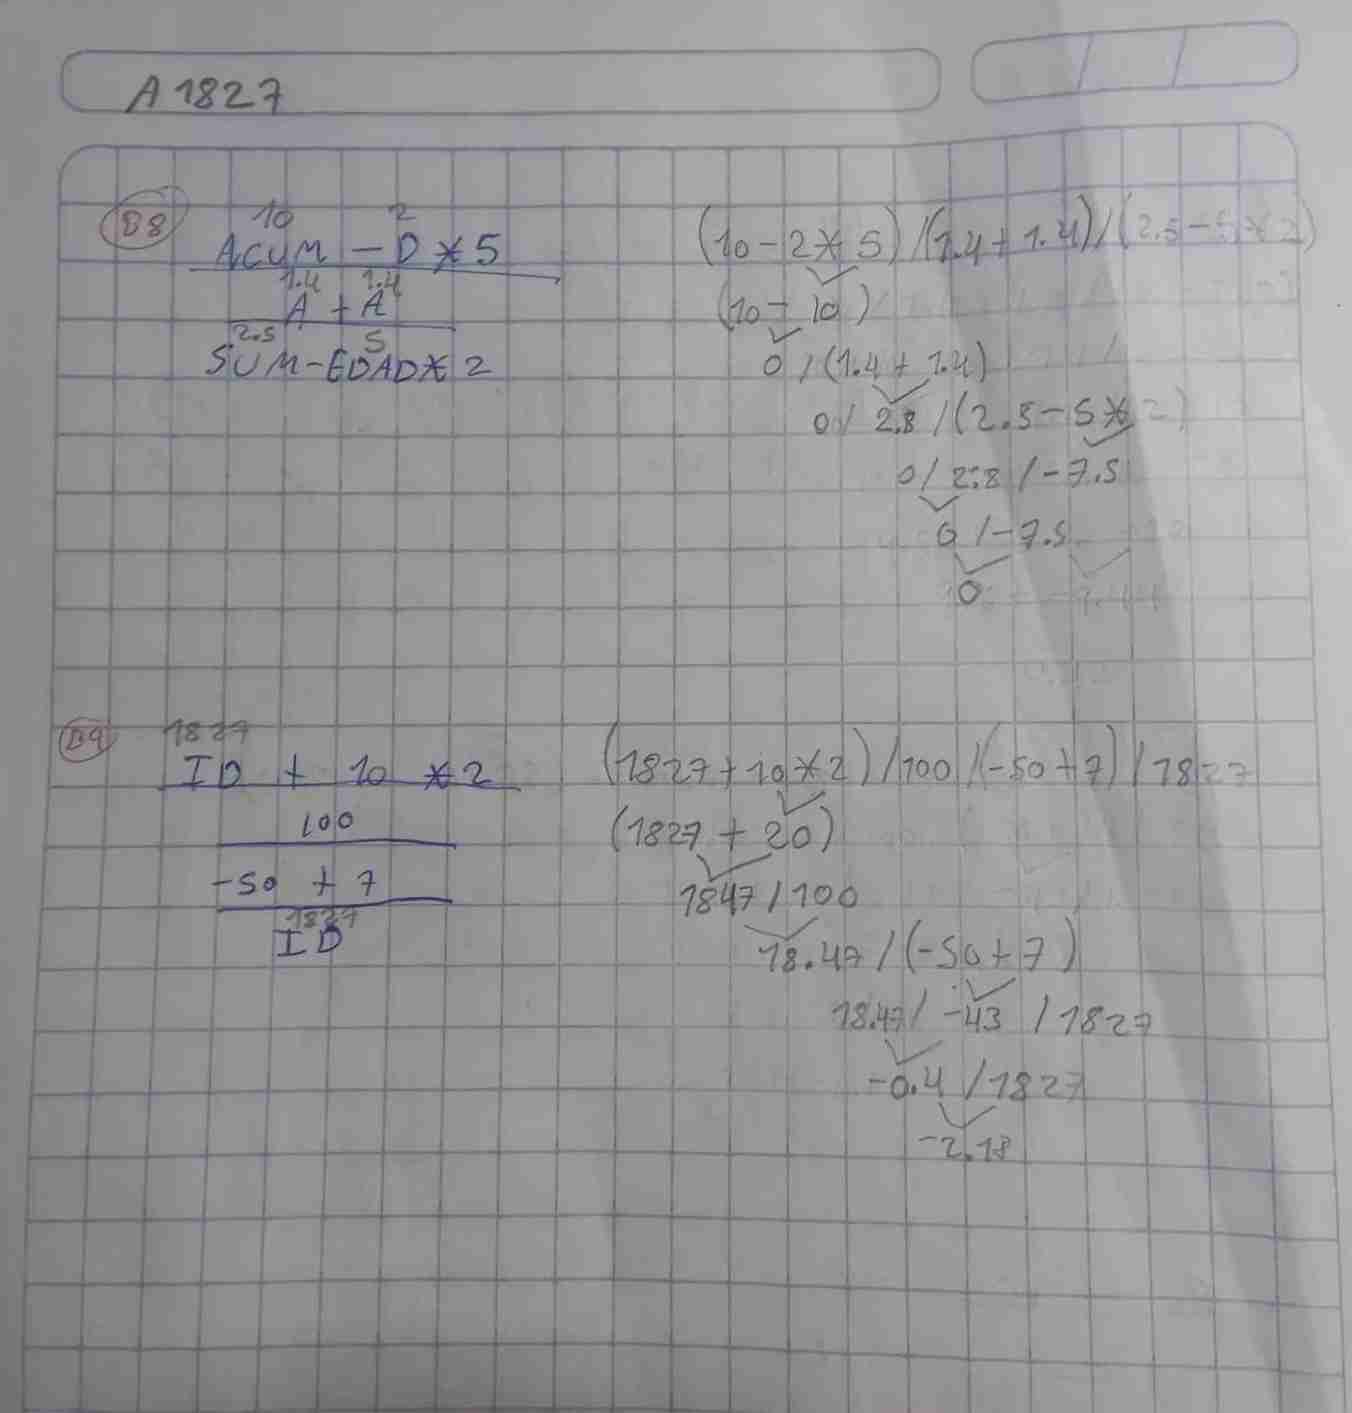 A1827
B8
10 2
ACUM - D * 5
1.4 1.4
A + A
2.5 5
SUM-EDAD * 2
(10 - 2 * 5) / (1.4 + 1.4) / (2.5 - 5 * 2)
(10 - 10)
0 / (1.4 + 1.4)
0 / 2.8 / (2.5 - 5 * 2)
0 / 2.8 / -7.5
0 / -7.5
0
B9
1827
ID + 10 * 2
100
-50 + 7
1827
ID
(1827 + 10 * 2) / 100 / (-50 + 7) / 1827
(1827 + 20)
1847 / 100
18.47 / (-50 + 7)
18.47 / -43 / 1827
-0.4 / 1827
-2.18